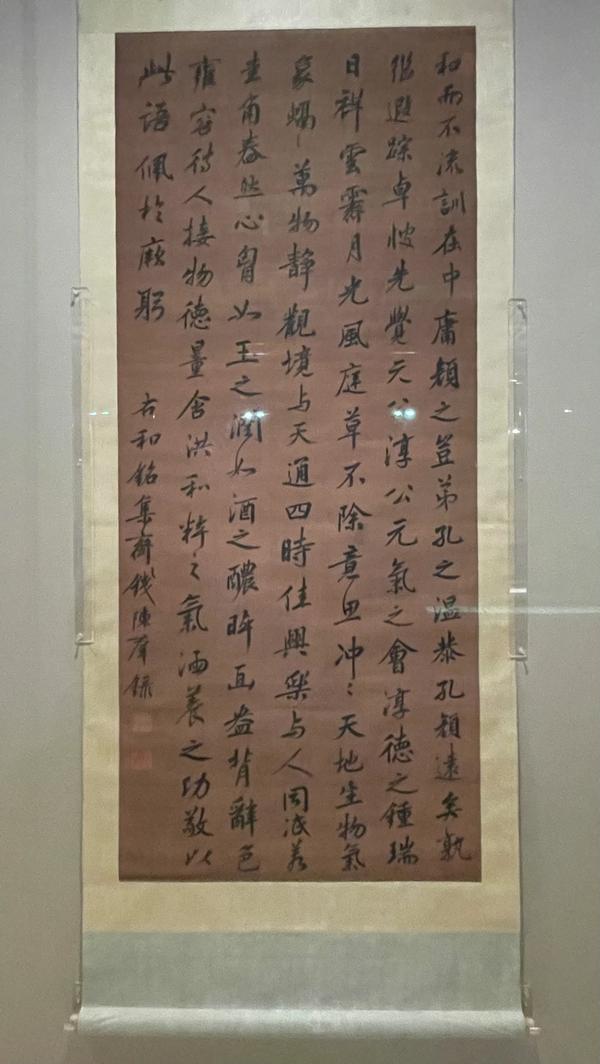 和而不流訓在中庸顏之豈弟孔之溫恭孔顏遠矣孰
繼遐踪卓彼先覺元公淳公元氣之會淳德之鍾瑞
日祥雲霽月光風庭草不除意思冲〻天地生物氣
象融〻萬物靜觀境与天通四時佳興樂与人同泯若
圭角春然心胷如玉之潤如酒之醲睟面盎背辭色
雍容待人接物德量含洪和粹之氣涵養之功敬以
此語佩於厥躬
右和銘集齋錢陳羣錄